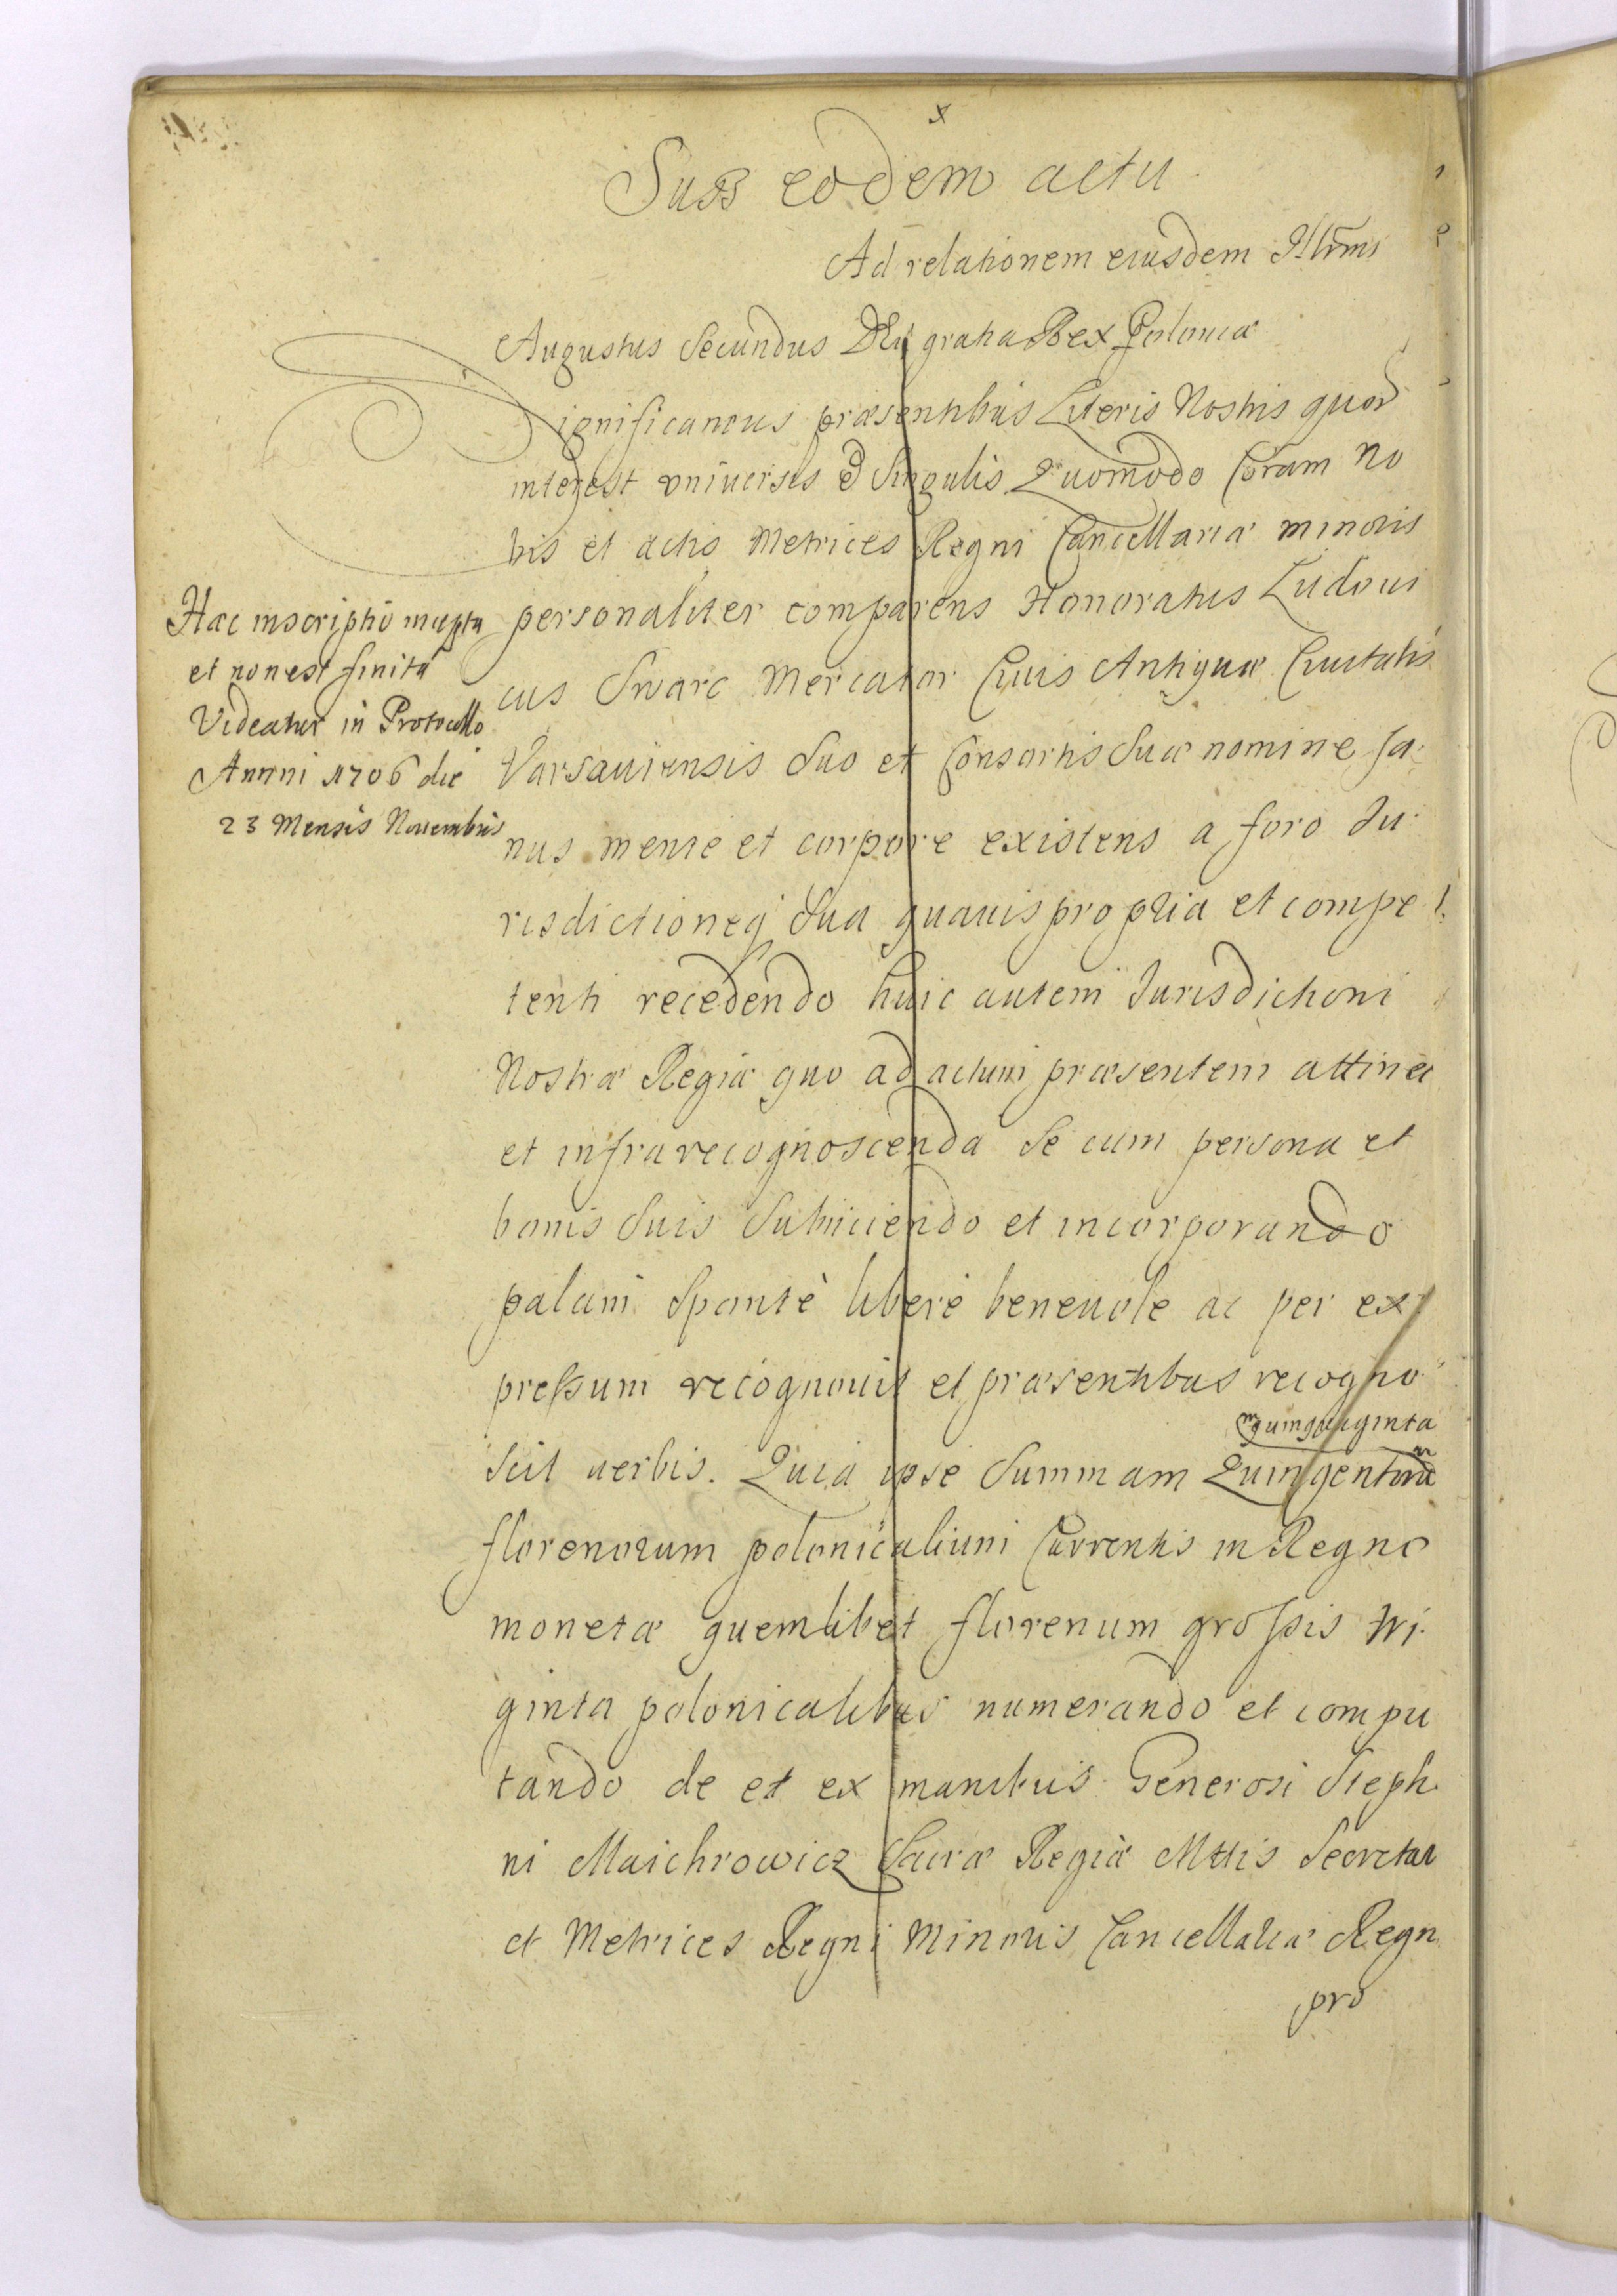 x
Sub eodem actu
Ad relationem eiusdem Illrmi
Augustus Secundus DEi gratia Rex Poloniæ
Significamus præsentibus Literis Nostris quor
interest universis et Singulis Quomodo Coram No
bis et actis Metrices Regni Cancellariæ minoris
personaliter comparens Honoratus Ludoui
cus Swarc Mercator Ciuis Antiquæ Ciuitatis
Varsauiensis Suo et Consortis Suæ nomine sa:
nus mente et corpore existens a foro Ju:
risdictioneq Sua quauis propria et compe
tenti recedendo huic autem Jurisdictioni
Nostræ Regiæ quo ad actum præsentem attinet
et infra recognoscenda Se cum persona et
bonis Suis Subiiciendo et incorporando
palam Sponte liberè beneuole ac per ex
pressum recognouit et præsentibus recogno
scit uerbis. Quia ipse Summam Quingentorū
quinquaginta
florenorum polonicalium Currentis in Regno
monetæ quemlibet florenum grossis tri:
ginta polonicalibus numerando et compu
tando de et ex manibus Generosi Steph
ni Maichrowicz Sacræ Regiæ Mttis Secretar
et Metrices Regni Minoris Cancellariæ Regn
pro
Hæc inscriptio incepta
et non est finita
Videatur in Protocollo
Anni 1706 die
23 Mensis Nouembris